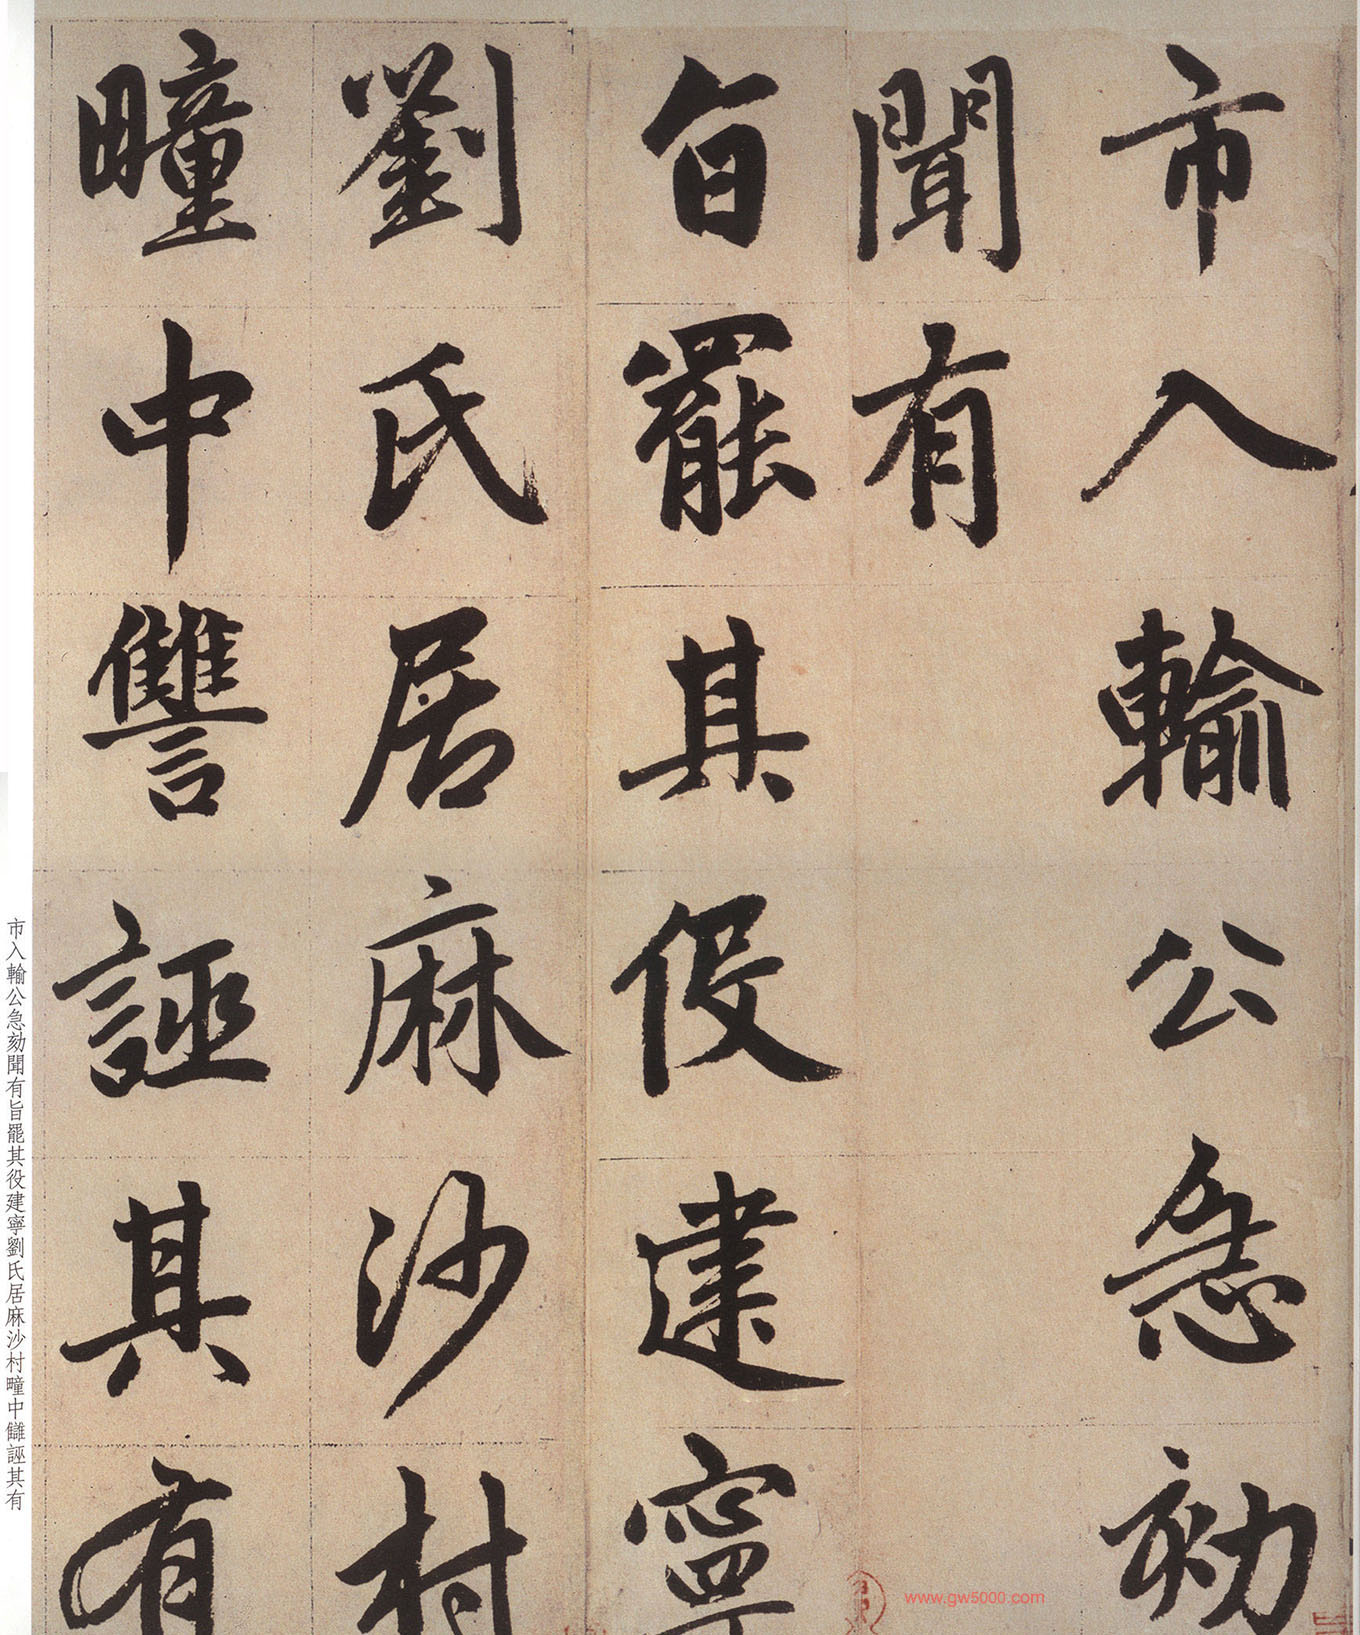 市入輸公急劾
聞有
旨罷其役建寧
劉氏居麻沙村
疃中讐誣其有
市入輸公急劾聞有旨罷其役建寧劉氏居麻沙村疃中讎誣其有
www.gw5000.com